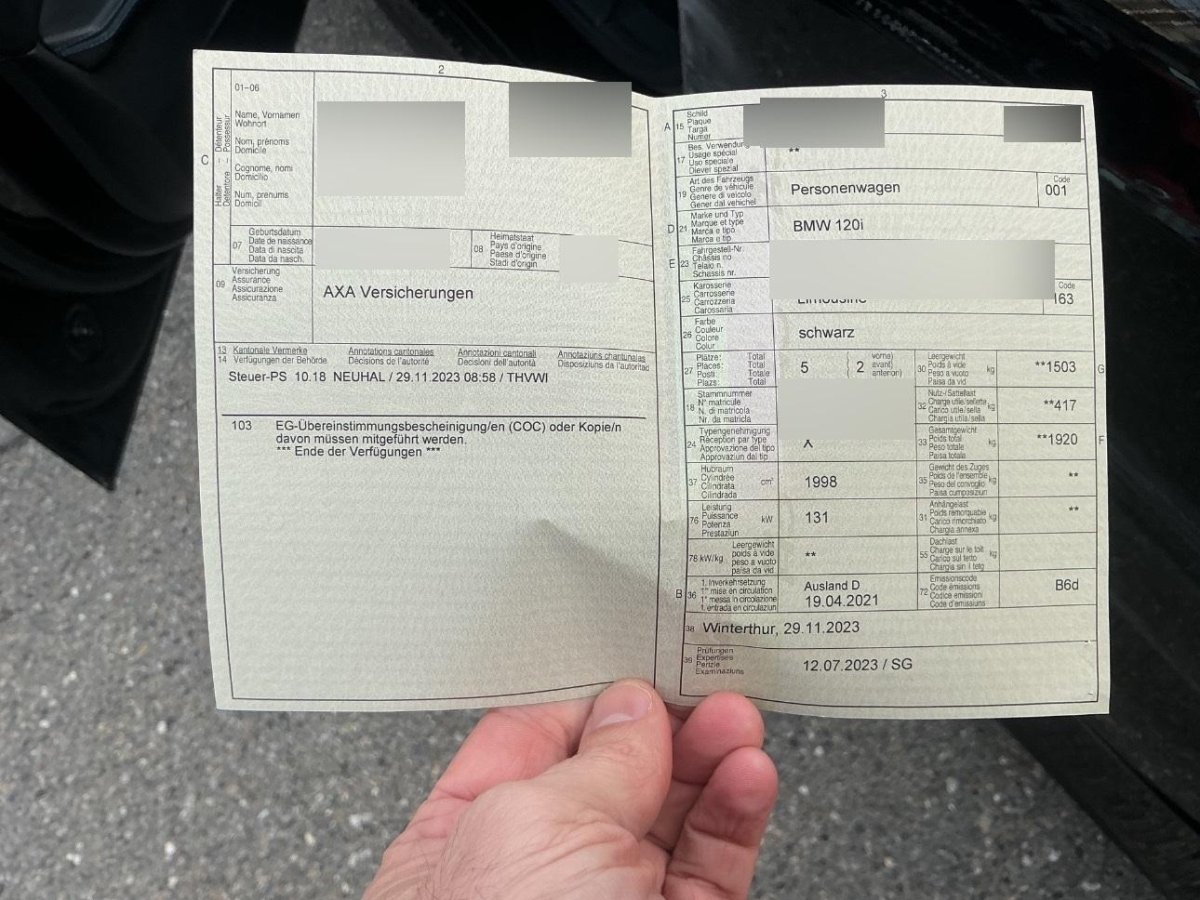 2
01-06
Name, Vornamen
Wohnort
Nom, prénoms
Domicile
Cognome, nomi
Domicilio
Num, prenums
Domicil
C
Halter – Détenteur
Detentore – Possessur
07
Geburtsdatum
Date de naissance
Data di nascita
Data da nasch.
08
Heimatstaat
Pays d'origine
Paese d'origine
Stadi d'origin
09
Versicherung
Assurance
Assicurazione
Assicuranza
AXA Versicherungen
13 Kantonale Vermerke Annotations cantonales Annotazioni cantonali Annotaziuns chantunalas
14 Verfügungen der Behörde Décisions de l'autorité Decisioni dell'autorità Disposiziuns da l'autoritad
Steuer-PS 10.18 NEUHAL / 29.11.2023 08:58 / THVWI
103 EG-Übereinstimmungsbescheinigung/en (COC) oder Kopie/n
davon müssen mitgeführt werden.
*** Ende der Verfügungen ***
3
A 15
Schild
Plaque
Targa
Numer
17
Bes. Verwendung
Usage spécial
Uso speciale
Diever spezial
**
19
Art des Fahrzeugs
Genre de véhicule
Genere di veicolo
Gener dal vehichel
Personenwagen
Code
001
D 21
Marke und Typ
Marque et type
Marca e tipo
Marca e tip
BMW 120i
E 23
Fahrgestell-Nr.
Châssis no
Telaio n.
Schassis nr.
25
Karosserie
Carrosserie
Carrozzeria
Carossaria
Limousine
Code
163
26
Farbe
Couleur
Colore
Colur
schwarz
27
Plätze: Total
Places: Total
Posti: Totale
Plazs: Total
5 2
vorne)
avant)
anteriori)
30
Leergewicht
Poids à vide
Peso a vuoto
Paisa da vid
kg
**1503
G
18
Stammnummer
N° matricule
N. di matricola
Nr. da matricla
32
Nutz-/Sattellast
Charge utile/sellette
Carico utile/sella
Chargia utila/sella
kg
**417
24
Typengenehmigung
Réception par type
Approvazione del tipo
Approvaziun dal tip
X
33
Gesamtgewicht
Poids total
Peso totale
Paisa totala
kg
**1920
F
37
Hubraum
Cylindrée
Cilindrata
Cilindrada
cm³
1998
35
Gewicht des Zuges
Poids de l'ensemble
Peso del convoglio
Paisa cumposiziun
kg
**
76
Leistung
Puissance
Potenza
Prestaziun
kW
131
31
Anhängelast
Poids remorquable
Carico rimorchiato
Chargia annexa
kg
**
78 kW/kg
Leergewicht
poids à vide
peso a vuoto
paisa da vid
**
55
Dachlast
Charge sur le toit
Carico sul tetto
Chargia sin il tetg
kg
B 36
1. Inverkehrsetzung
1re mise en circulation
1a messa in circolazione
1. entrada en circulaziun
Ausland D
19.04.2021
72
Emissionscode
Code émissions
Codice emissioni
Code d'emissiuns
B6d
38 Winterthur, 29.11.2023
39
Prüfungen
Expertises
Perizie
Examinaziuns
12.07.2023 / SG